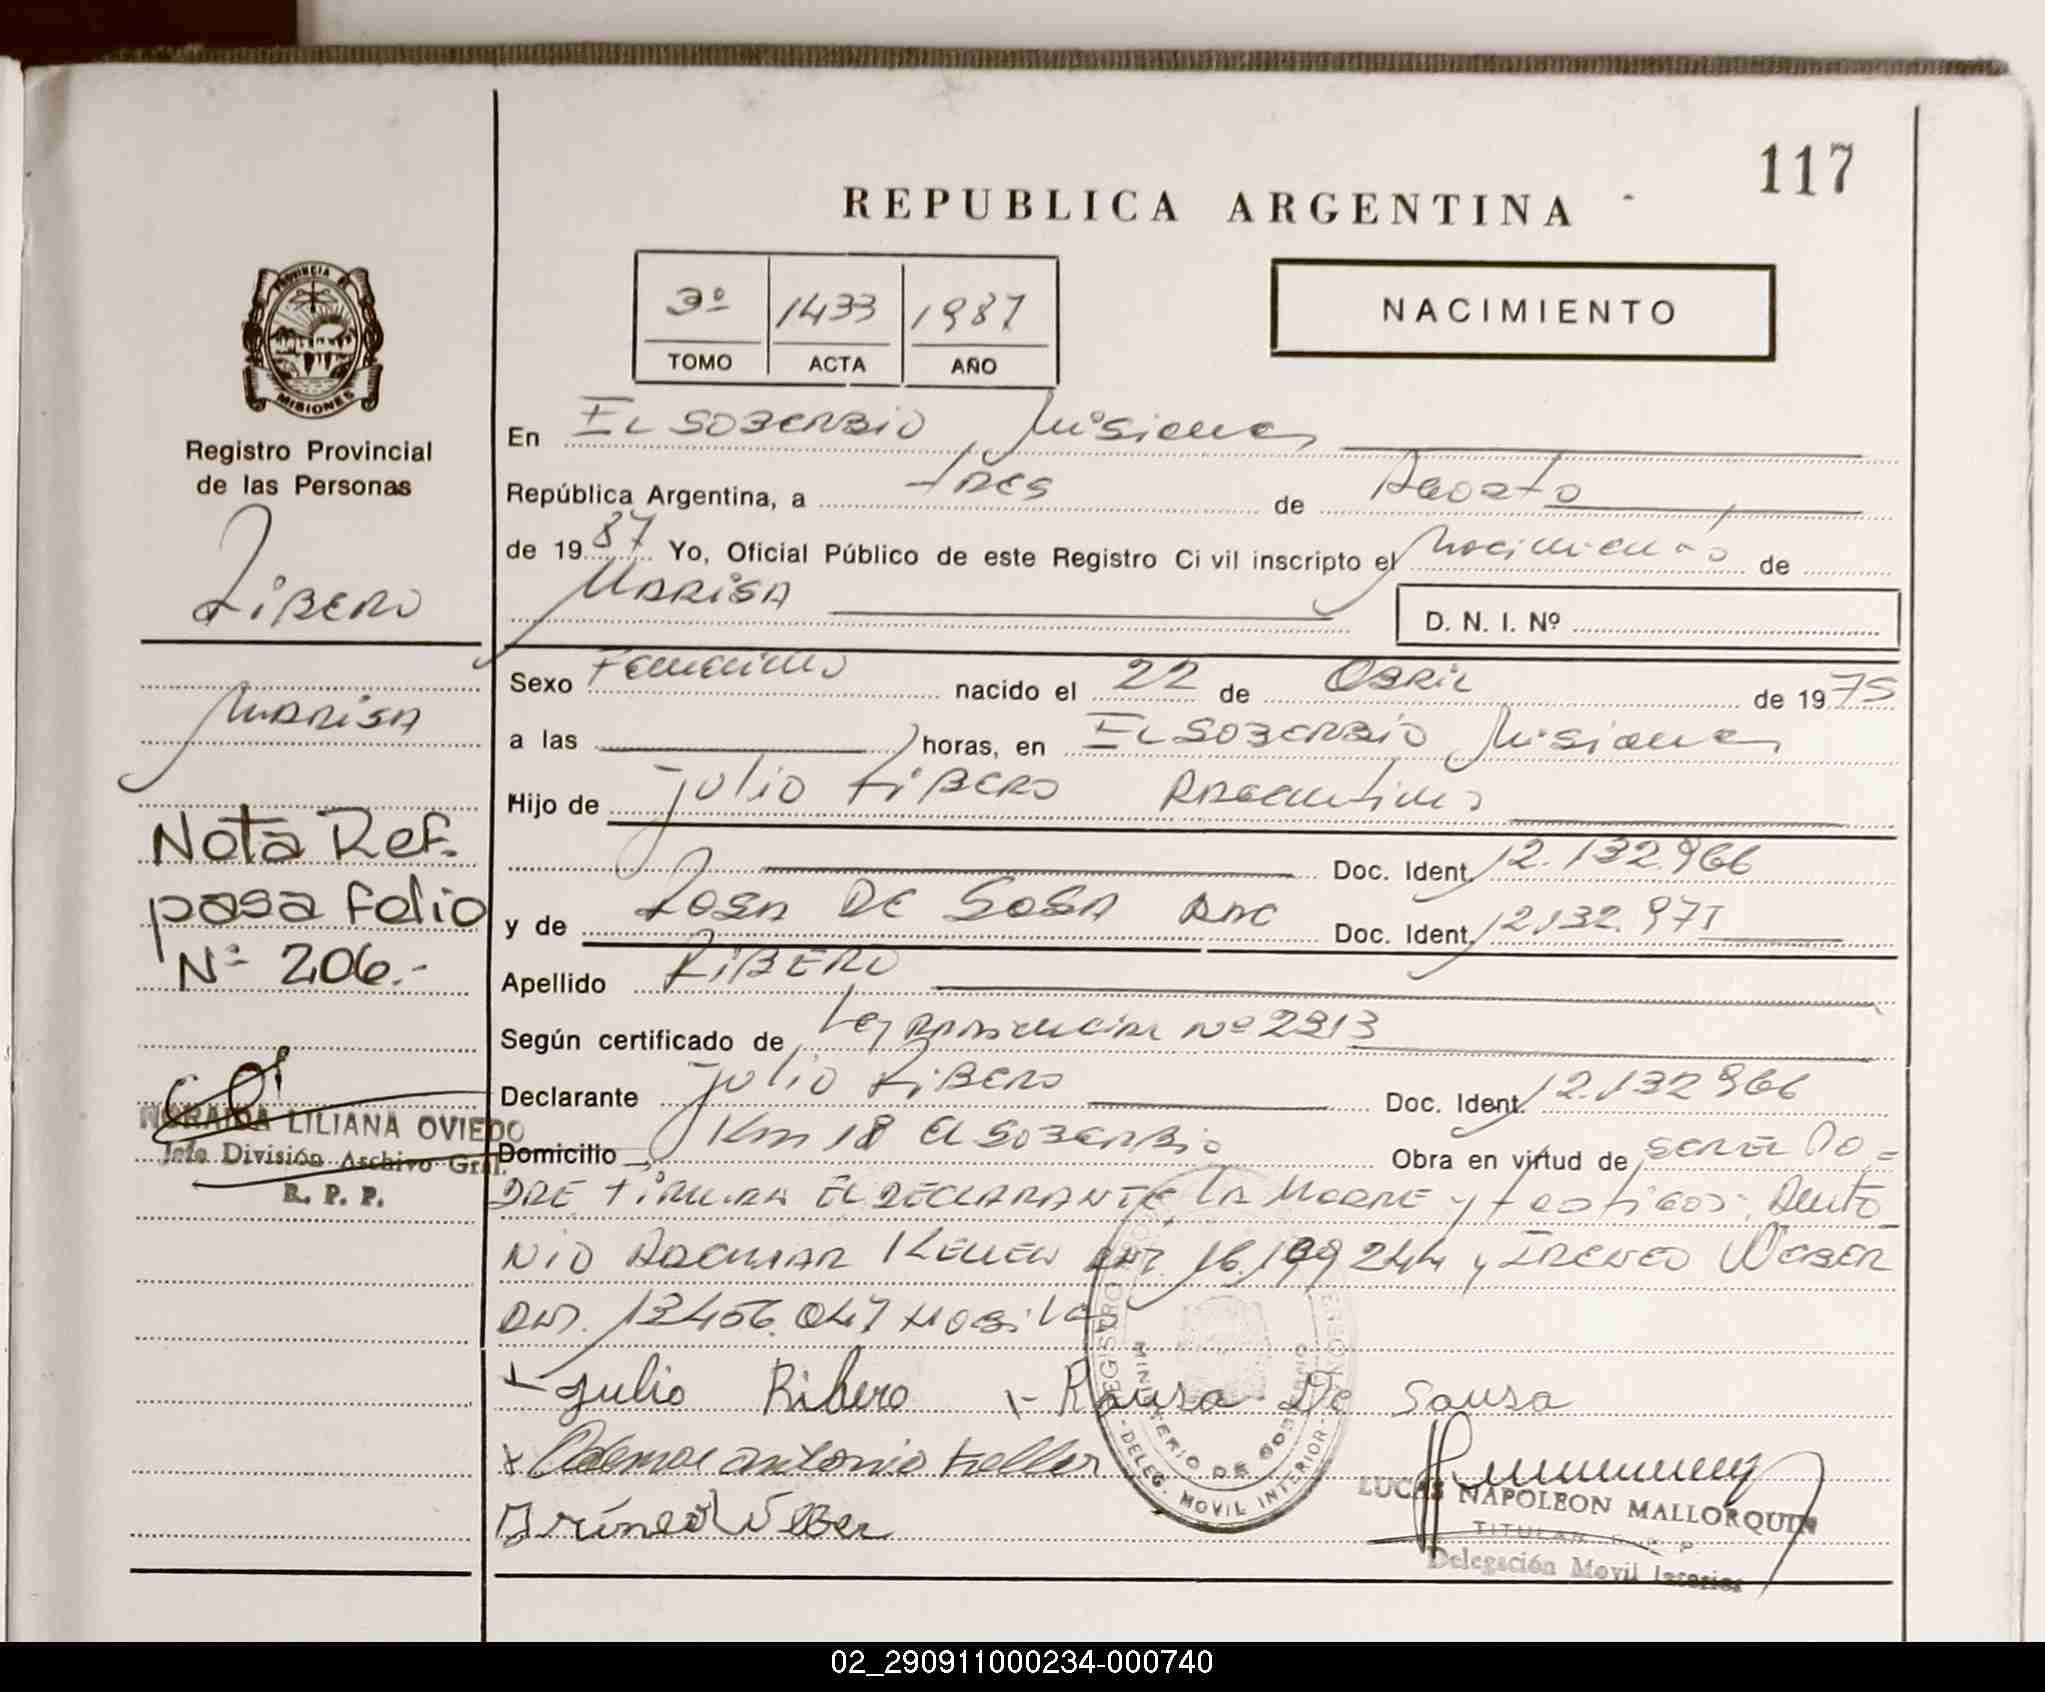 117
REPUBLICA ARGENTINA
3º 1433 1987
TOMO ACTA AÑO
NACIMIENTO
PROVINCIA DE
MISIONES
Registro Provincial
de las Personas
Ribero
Marisa
Nota Ref.
pasa folio
Nº 206.-
NORAIDA LILIANA OVIEDO
Jefe División Archivo Gral.
R. P. P.
En El Soberbio, Misiones
República Argentina, a tres de Agosto
de 1987 Yo, Oficial Público de este Registro Civil inscripto el Nacimiento de
Marisa D. N. I. Nº
Sexo Femenino nacido el 22 de Abril de 1975
a las horas, en El Soberbio Misiones
Hijo de Julio Ribero Argentino
Doc. Ident. 12.132.966
y de Rosa De Sosa Arg Doc. Ident. 12.132.971
Apellido Ribero
Según certificado de Ley Provincial Nº 2913
Declarante Julio Ribero Doc. Ident. 12.132966
Domicilio Km 18 El Soberbio Obra en virtud de ser el Pa-
dre firman el declarante, la Madre y testigos: Anto
nio Ademar Keller DNI. 16.199244 y Ireneo Weber
DNI. 13456.047
Julio Ribero Rausa De Sausa
Ademar antonio Keller
Iríneo Weber
REGISTRO
MINISTERIO DE GOBIERNO
DELEG. MOVIL INTERIOR
LUCAS NAPOLEON MALLORQUIN
TITULAR
Delegación Movil Interior
02_290911000234-000740